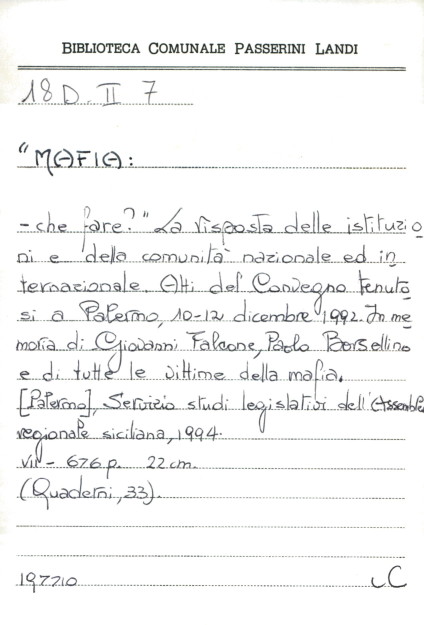 BIBLIOTECA COMUNALE PASSERINI LANDI
18 D. II 7
"MAFIA:
- che fare?" La risposta delle istituzio
ni e della comunità nazionale ed in
ternazionale. Atti del Convegno tenuto
si a Palermo, 10-12 dicembre 1992. In me
moria di Giovanni Falcone, Paolo Borsellino
e di tutte le vittime della mafia.
[Palermo], Servizio studi legislativi dell'Assemblea
regionale siciliana, 1994.
VII - 676 p. 22 cm.
(Quaderni, 33).
197710